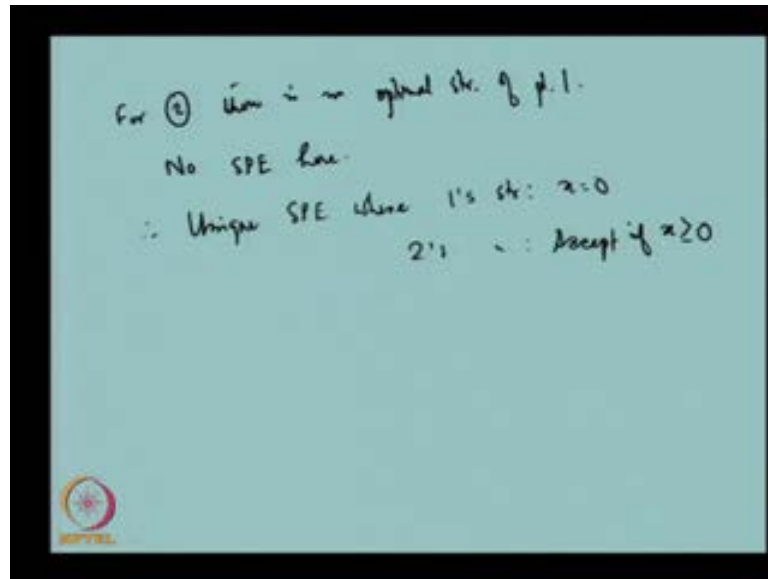 For ② there is no optimal str. of pl. 1.
No SPE here.
∴ Unique SPE where 1's str: x=0
2's " : Accept if x≥0
NPTEL